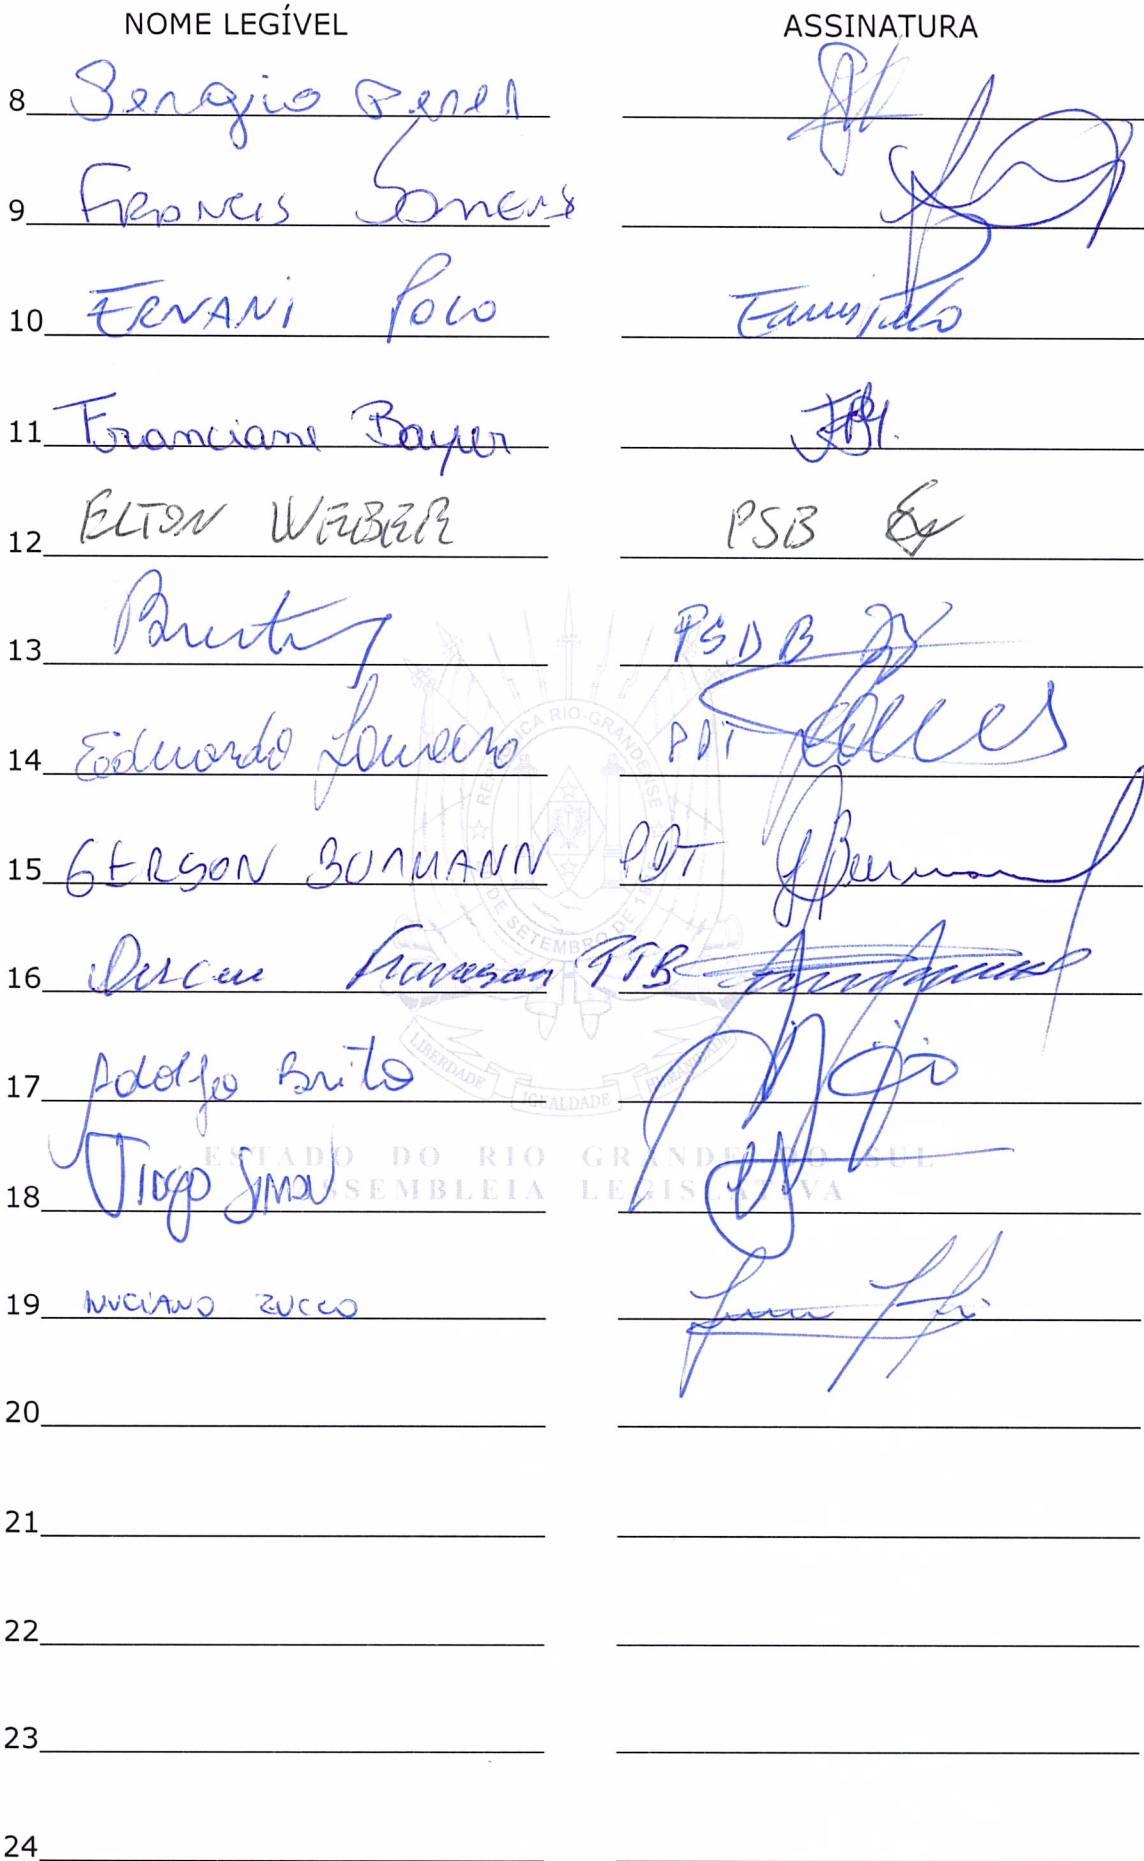 NOME LEGÍVEL ASSINATURA
8 Sergio Peres
9 Francis Somens
10 ERNANI POLO
11 Franciane Bayer
12 ELTON WEBER PSB
13 PSDB
14 Eduardo Loureiro PDT
15 GERSON BURMANN PDT GBurmann
16 Dirceu Franciscon PTB
17 Adolfo Brito
18 Tiago Simon
19 LUCIANO ZUCCO
20
21
22
23
24
REPÚBLICA RIO-GRANDENSE
DE SETEMBRO DE
LIBERDADE IGUALDADE HUMANIDADE
ESTADO DO RIO GRANDE DO SUL
ASSEMBLEIA LEGISLATIVA